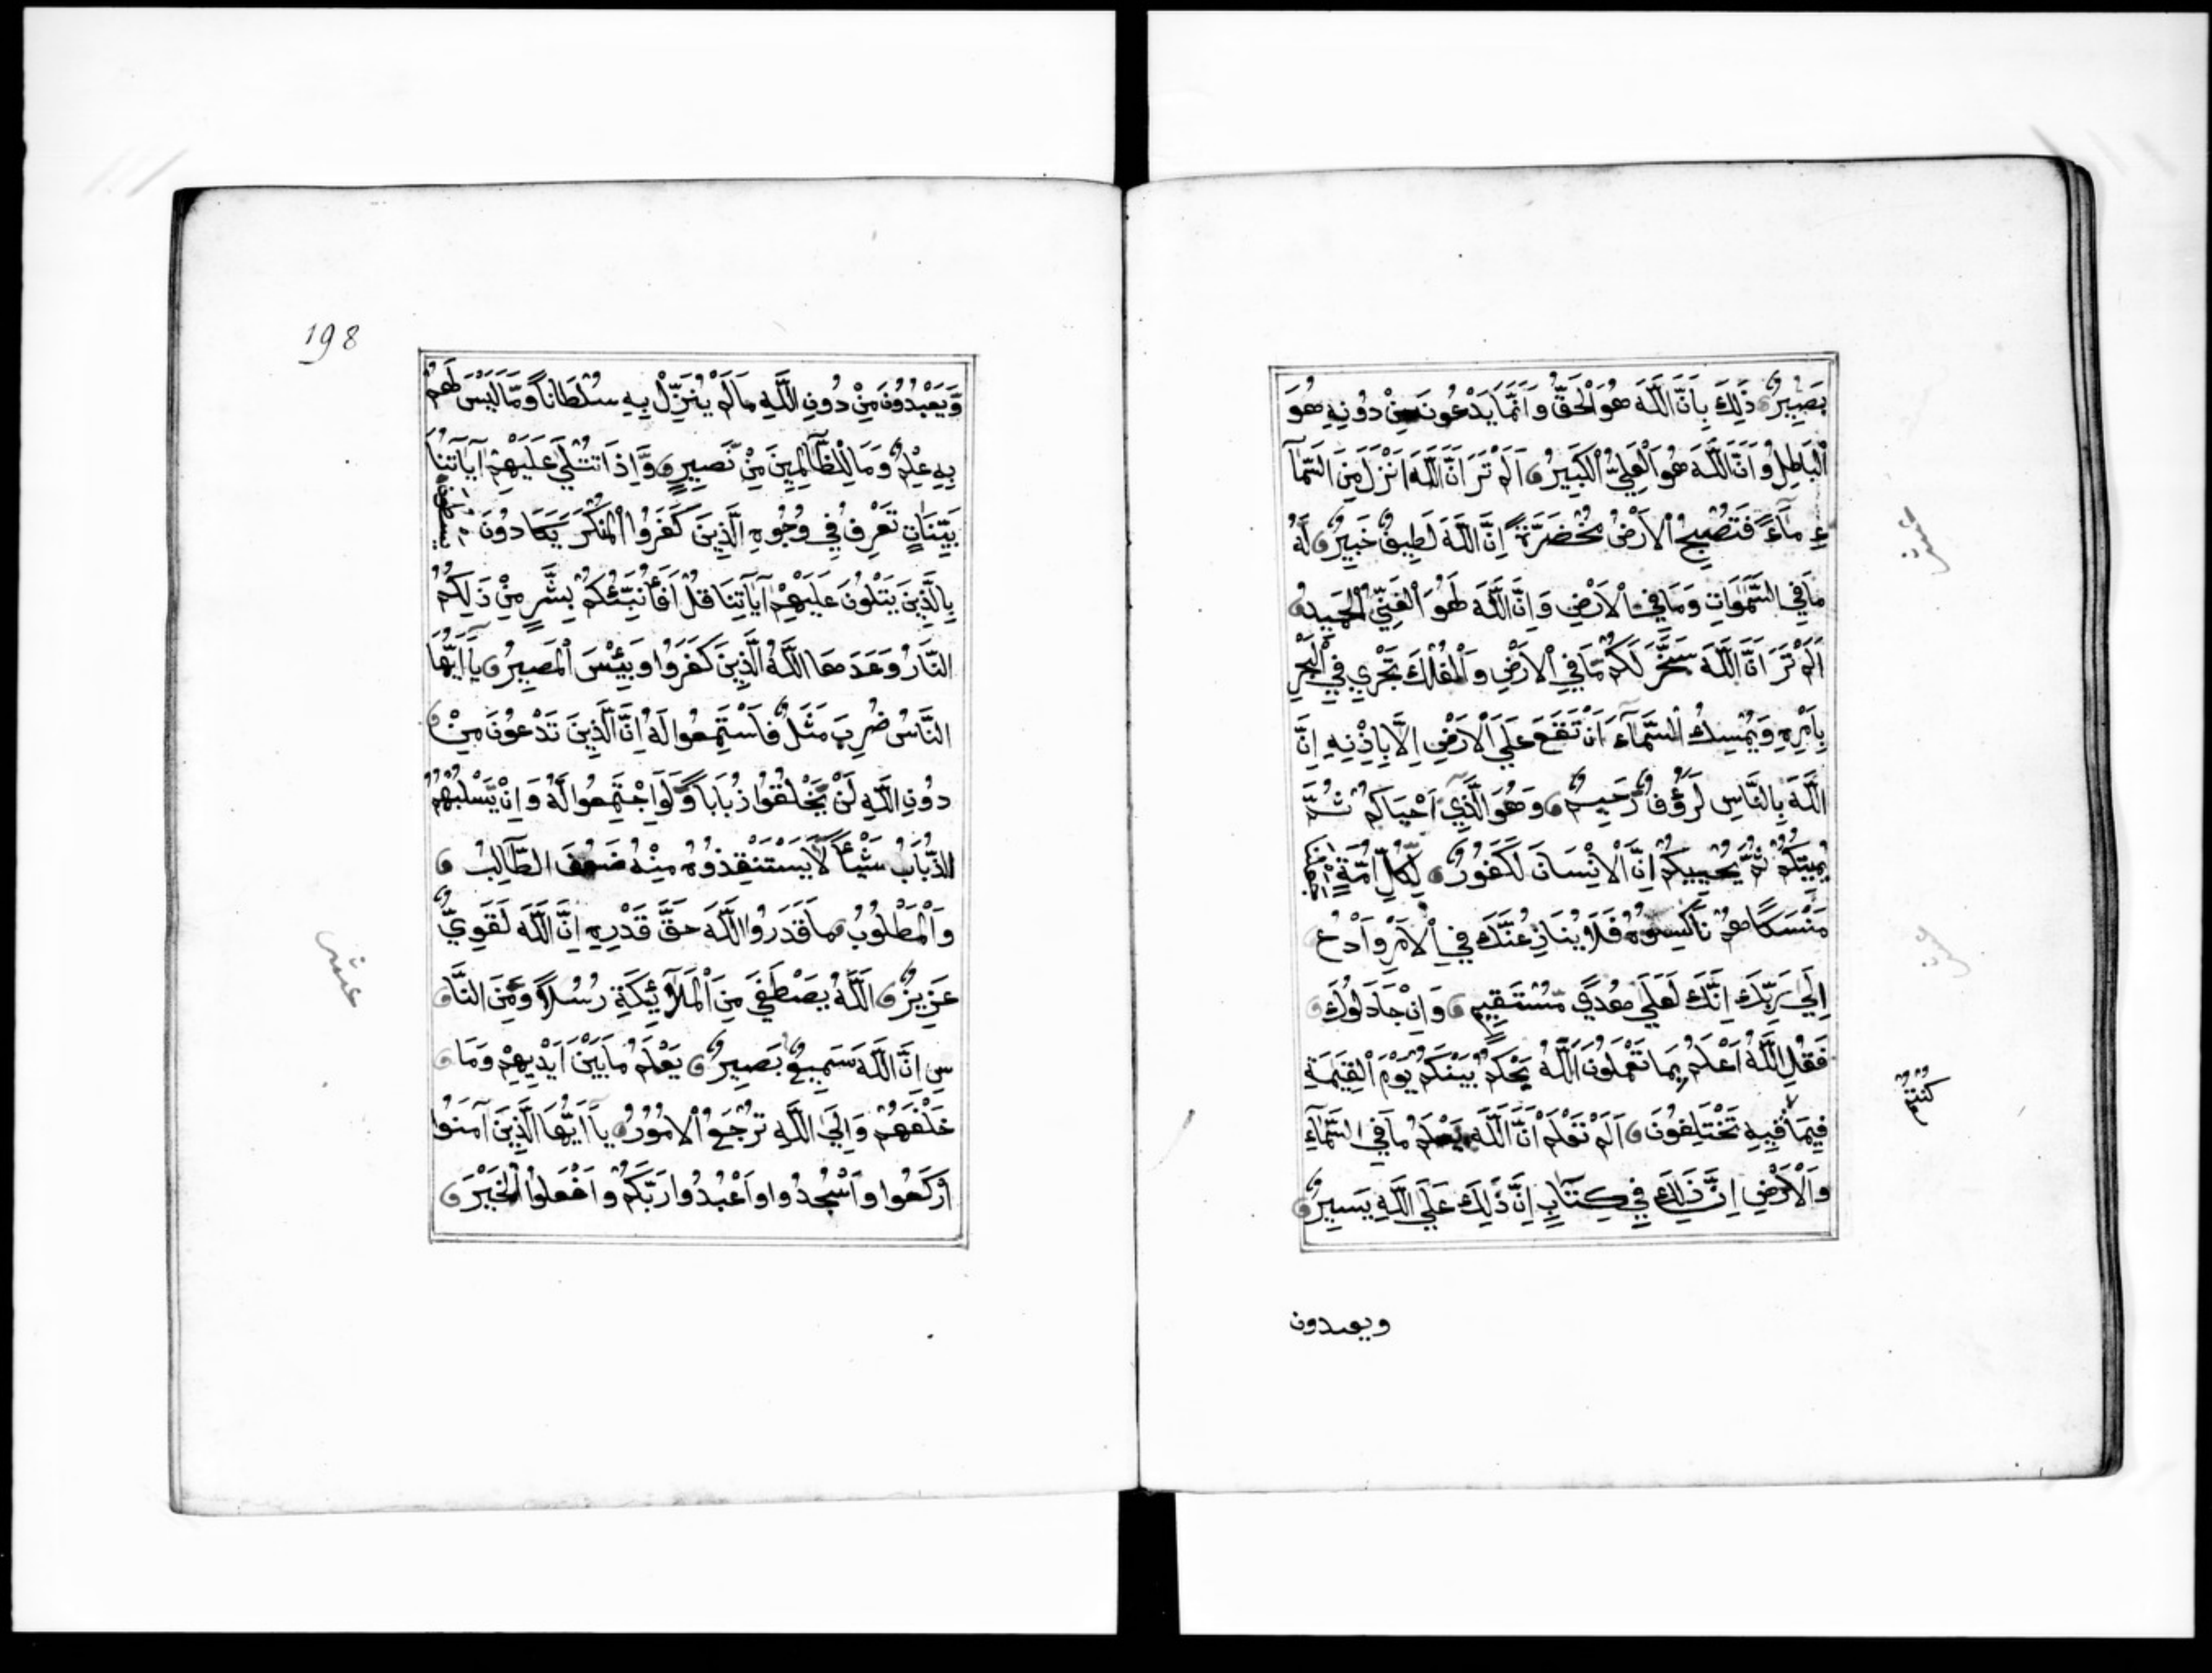 بَصِيرٌ ذَلِكَ بِاَنَّ اللَّهَ هُوَ الْحَقُّ وَاَنَّمَا يَدْعُونَ مِنْ دُونِهِ هُوَ
الْبَاطِلُ وَاَنَّ اللَّهَ هُوَ الْعَلِيُّ الْكَبِيرُ اَلَمْ تَرَ اَنَّ اللَّهَ اَنْزَلَ مِنَ السَّمَآ
ءِ مَآءً فَتُصْبِحُ الْاَرْضُ مُخْضَرَّةً اِنَّ اللَّهَ لَطِيفٌ خَبِيرٌ لَهُ
مَا فِي السَّمَوَاتِ وَمَا فِي الْاَرْضِ وَاِنَّ اللَّهَ لَهُوَ الْغَنِيُّ الْحَمِيدُ
اَلَمْ تَرَ اَنَّ اللَّهَ سَخَّرَ لَكُمْ مَّا فِي الْاَرْضِ وَالْفُلْكَ تَجْرِي فِي الْبَحْرِ
بِاَمْرِهِ وَيُمْسِكُ السَّمَآءَ اَنْ تَقَعَ عَلَي الْاَرْضِ اِلَّا بِاِذْنِهِ اِنَّ
اللَّهَ بِالنَّاسِ لَرَؤُفٌ رَّحِيمٌ وَهُوَ الَّذِيٓ اَحْيَاكُمْ ثُمَّ
يُمِيتُكُمْ ثُمَّ يُحْيِيكُمْ اِنَّ الْاِنْسَانَ لَكَفُورٌ لِّكُلِّ اُمَّةٍ
مَنْسَكًا هُمْ نَاسِكُوهُ فَلَا يُنَازِعُنَّكَ فِي الْاَمْرِ وَادْعُ
اِلَي رَبِّكَ اِنَّكَ لَعَلَي هُدًي مُّسْتَقِيمٍ وَاِنْ جَادَلُوكَ
فَقُلِ اللَّهُ اَعْلَمُ بِمَا تَعْمَلُونَ اَللَّهُ يَحْكُمُ بَيْنَكُمْ يَوْمَ الْقِيَمَةِ
فِيمَا فِيهِ تَخْتَلِفُونَ اَلَمْ تَعْلَمْ اَنَّ اللَّهَ يَعْلَمُ مَا فِي السَّمَآءِ
وَالْاَرْضِ اِنَّ ذَلِكَ فِي كِتَابٍ اِنَّ ذَلِكَ عَلَي اللَّهِ يَسِيرٌ
كُنْتُمْ
ويعبدون
198
وَيَعْبُدُونَ مِنْ دُونِ اللَّهِ مَا لَمْ يُنَزِّلْ بِهِ سُلْطَانًا وَّمَا لَيْسَ لَهُمْ
بِهِ عِلْمٌ وَمَا لِلظَّالِمِينَ مِنْ نَّصِيرٍ وَّاِذَا تُتْلَي عَلَيْهِمْ آيَاتُنَا
بَيِّنَاتٍ تَعْرِفُ فِي وُجُوهِ الَّذِينَ كَفَرُوا الْمُنْكَرَ يَكَادُونَ يَسْطُونَ
بِالَّذِينَ يَتْلُونَ عَلَيْهِمْ آيَاتِنَا قُلْ اَفَاُنَبِّئُكُمْ بِشَرٍّ مِنْ ذَلِكُمُ
النَّارُ وَعَدَهَا اللَّهُ الَّذِينَ كَفَرُوا وَبِئْسَ الْمَصِيرُ يَآ اَيُّهَا
النَّاسُ ضُرِبَ مَثَلٌ فَاسْتَمِعُوا لَهُ اِنَّ الَّذِينَ تَدْعُونَ مِنْ
دُونِ اللَّهِ لَنْ يَخْلُقُوا ذُبَابًا وَّلَوِ اجْتَمَعُوا لَهُ وَاِنْ يَّسْلُبْهُمُ
الذُّبَابُ شَيْئًا لَّا يَسْتَنْقِذُوهُ مِنْهُ ضَعُفَ الطَّالِبُ
وَالْمَطْلُوبُ مَا قَدَرُوا اللَّهَ حَقَّ قَدْرِهِ اِنَّ اللَّهَ لَقَوِيٌّ
عَزِيزٌ اَللَّهُ يَصْطَفِي مِنَ الْمَلَآئِكَةِ رُسُلًا وَّمِنَ النَّا
سِ اِنَّ اللَّهَ سَمِيعٌ بَصِيرٌ يَعْلَمُ مَا بَيْنَ اَيْدِيهِمْ وَمَا
خَلْفَهُمْ وَاِلَي اللَّهِ تُرْجَعُ الْاُمُورُ يَآ اَيُّهَا الَّذِينَ آمَنُوا
ارْكَعُوا وَاسْجُدُوا وَاعْبُدُوا رَبَّكُمْ وَافْعَلُوا الْخَيْرَ
عشر